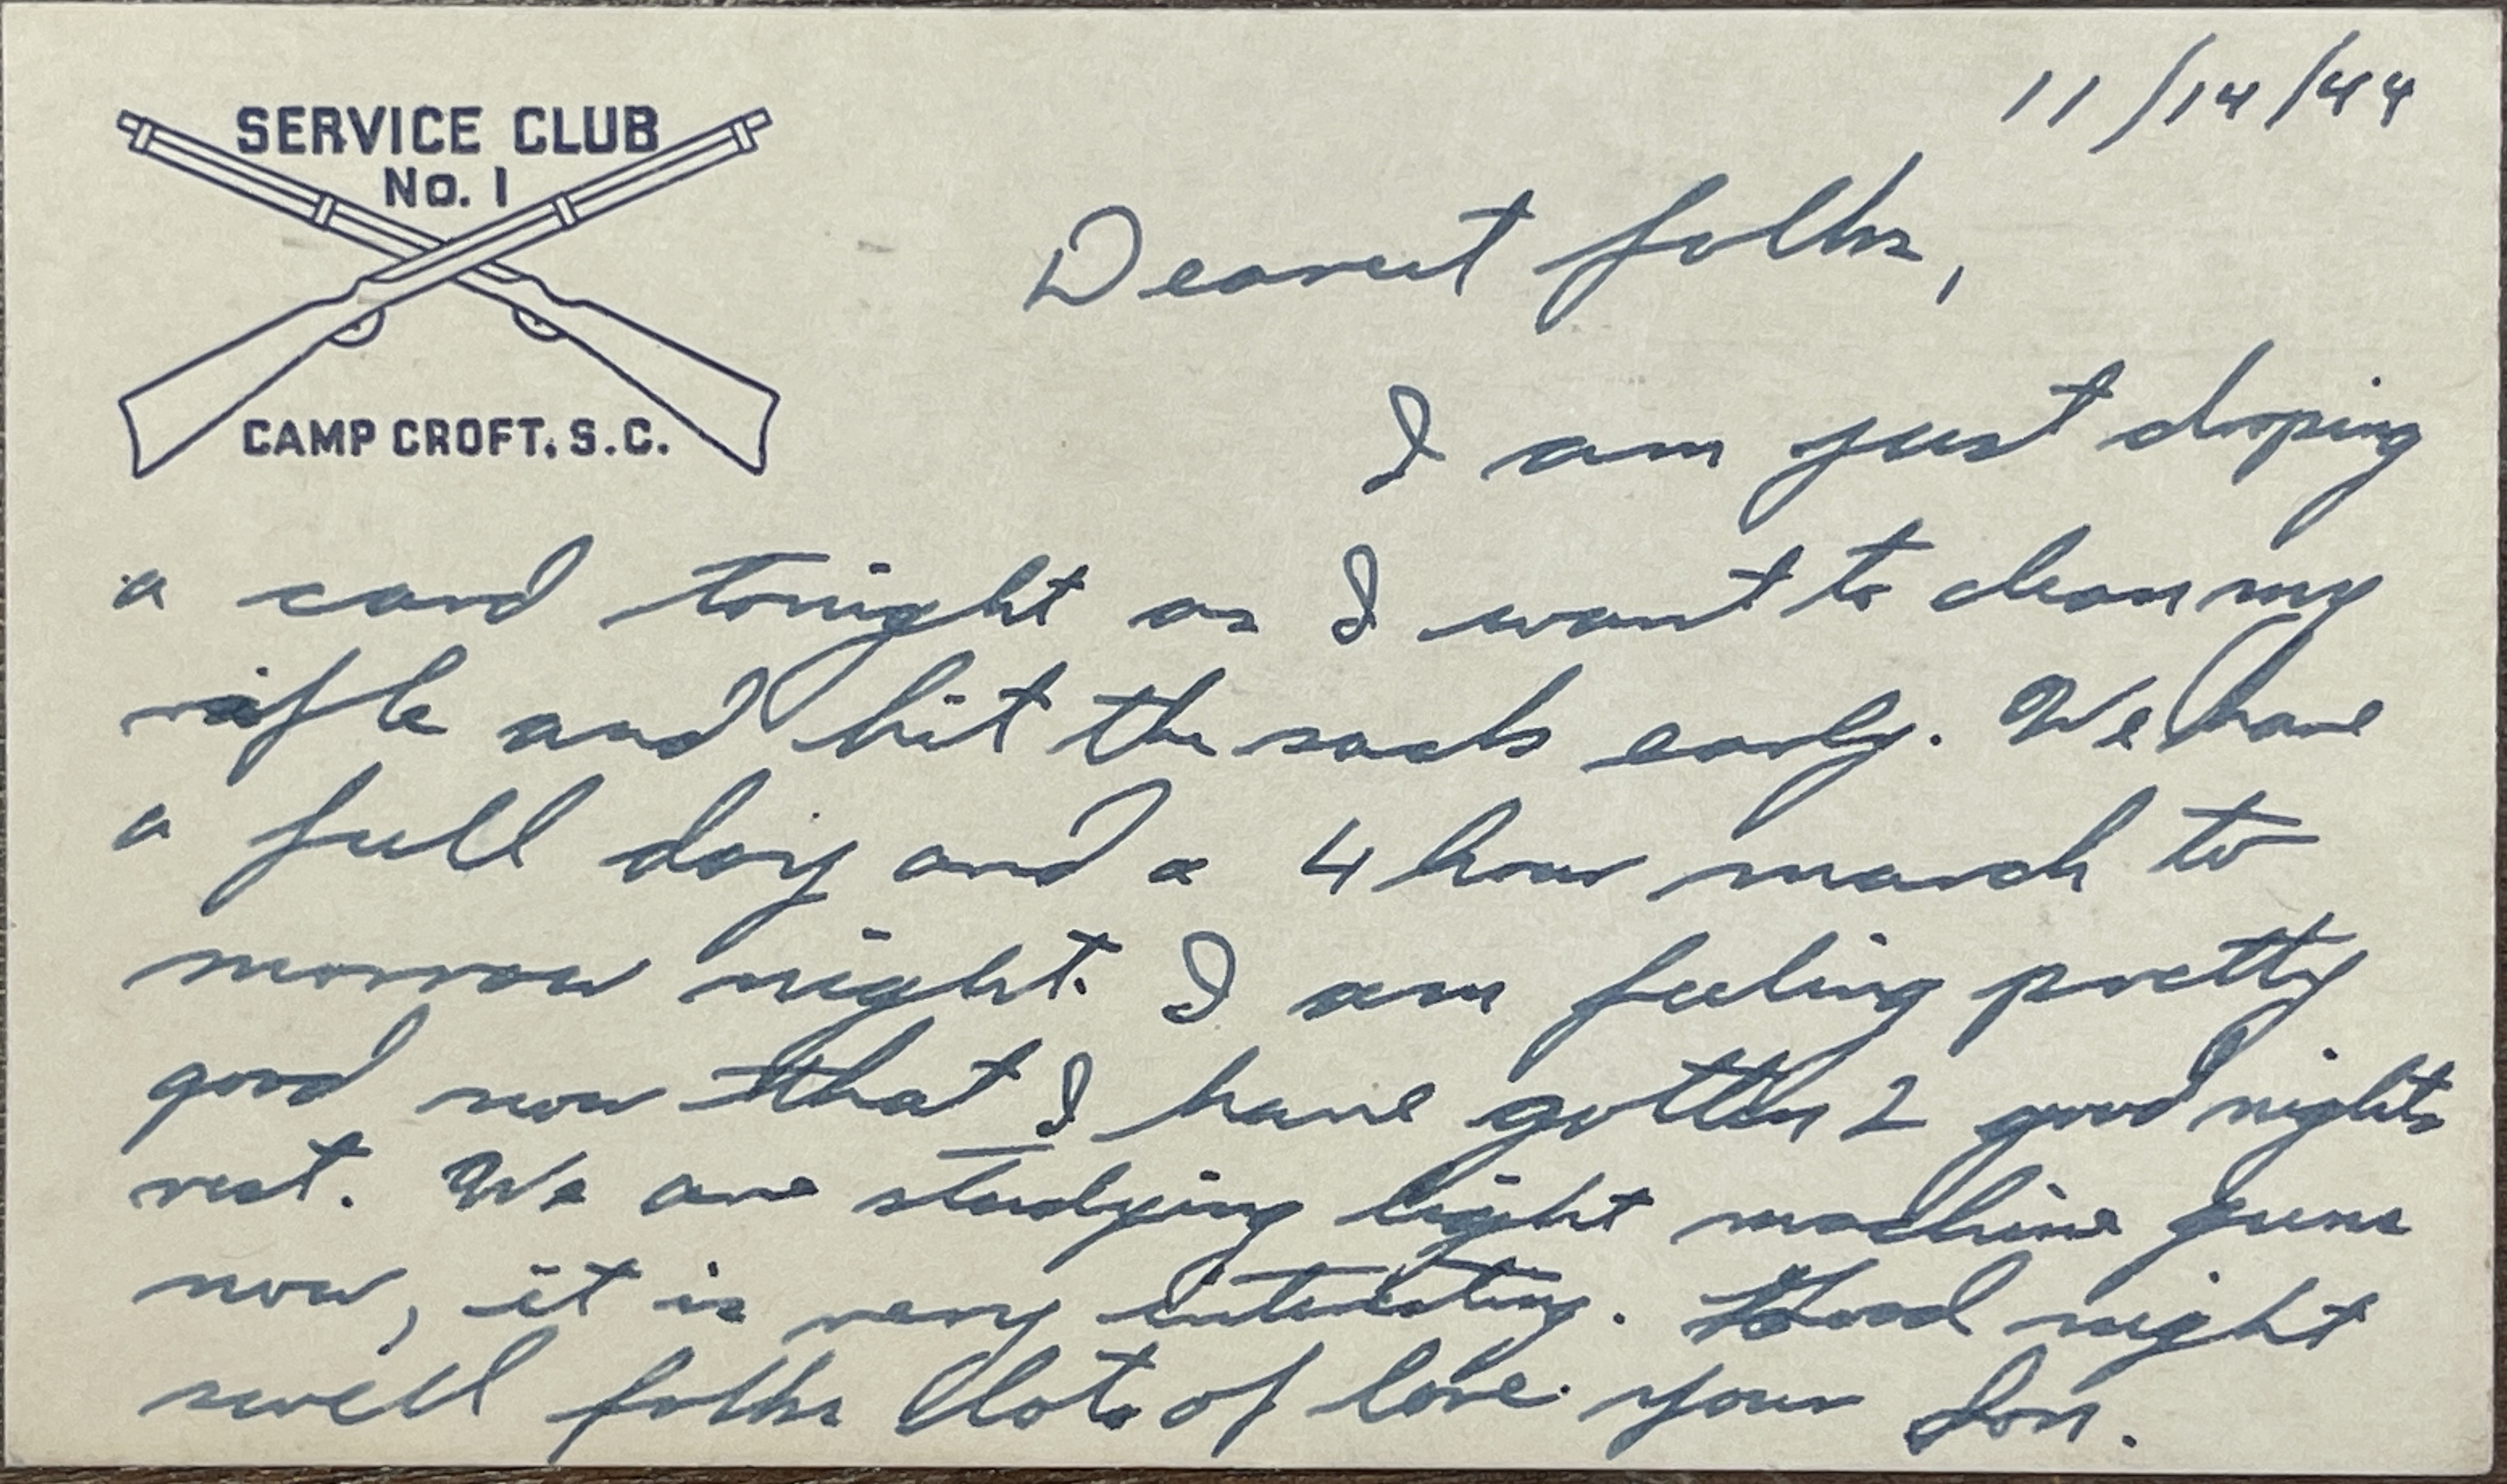 SERVICE CLUB
No. 1
CAMP CROFT, S.C.
11/14/44
Dearest folks,
I am just droping
a card tonight as I want to clean my
rifle and hit the sack early. We have
a full day and a 4 hour march to
morrow night. I am feeling pretty
good now that I have gotten 2 good nights
rest. We are studying light machine guns
now, it is very interesting. Good night
swell folks lots of love your son.